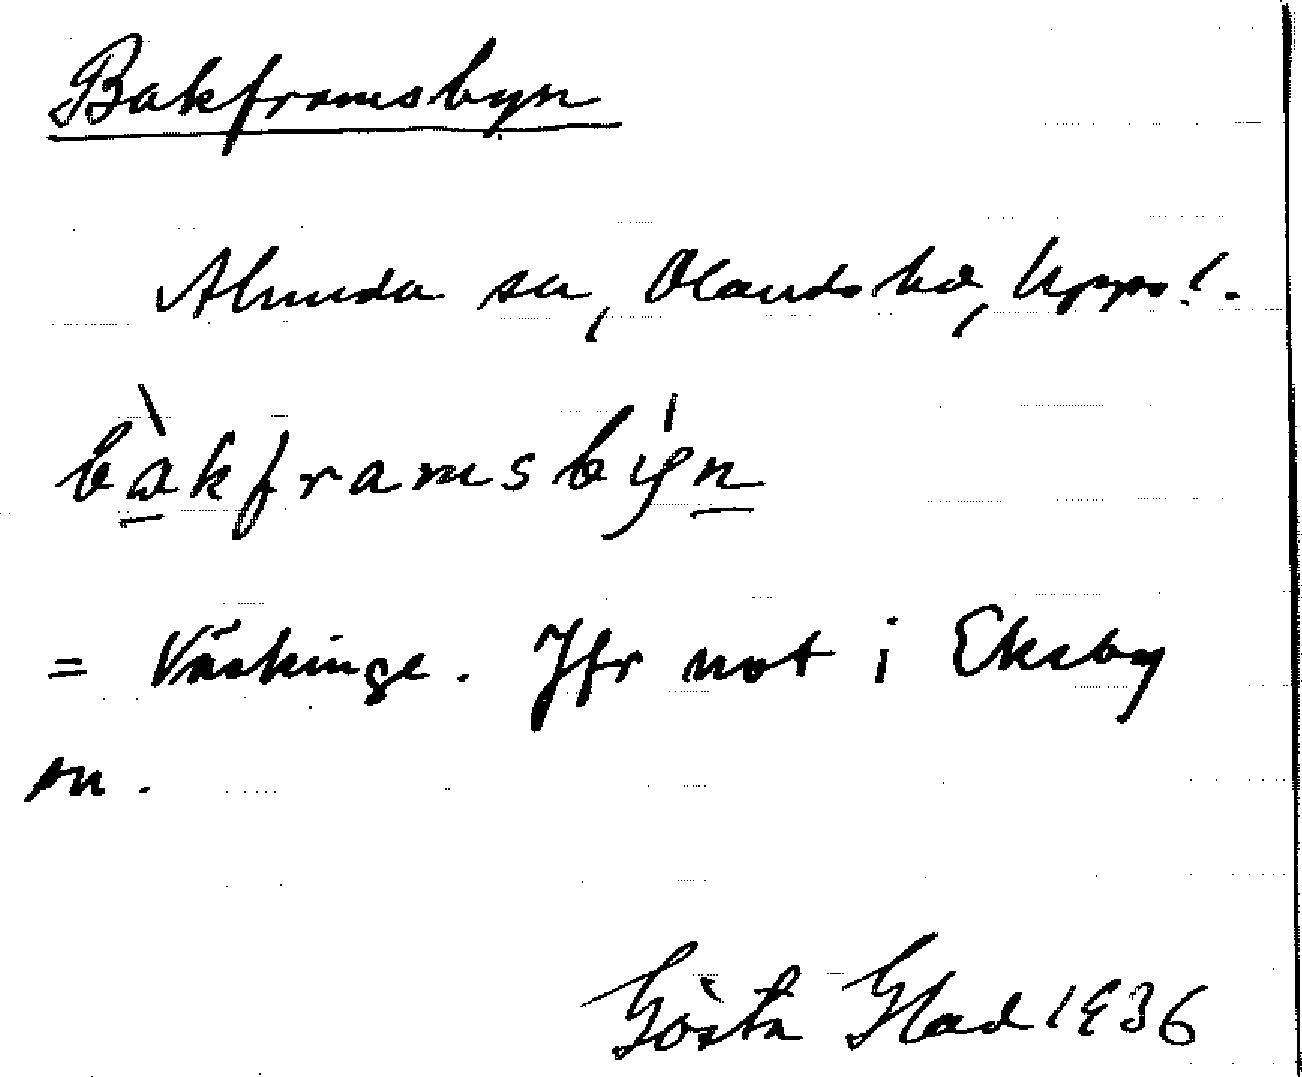 Bakframsbyn
Alunda sn, Olands hd, Upps. l.
bàkframsbýn
= Väskinge. Jfr not i Eksby
sn.
Gösta Glad 1936